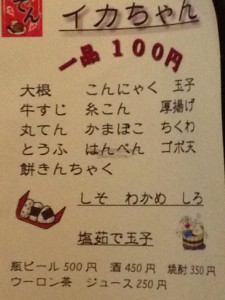 おでん
イカちゃん
一品 100円
大根 こんにゃく 玉子
牛すじ 糸こん 厚揚げ
丸てん かまぼこ ちくわ
とうふ はんぺん ゴボ天
餅きんちゃく
しそ わかめ しろ
塩茹で玉子
瓶ビール500円 酒450円 焼酎350円
ウーロン茶 ジュース250円